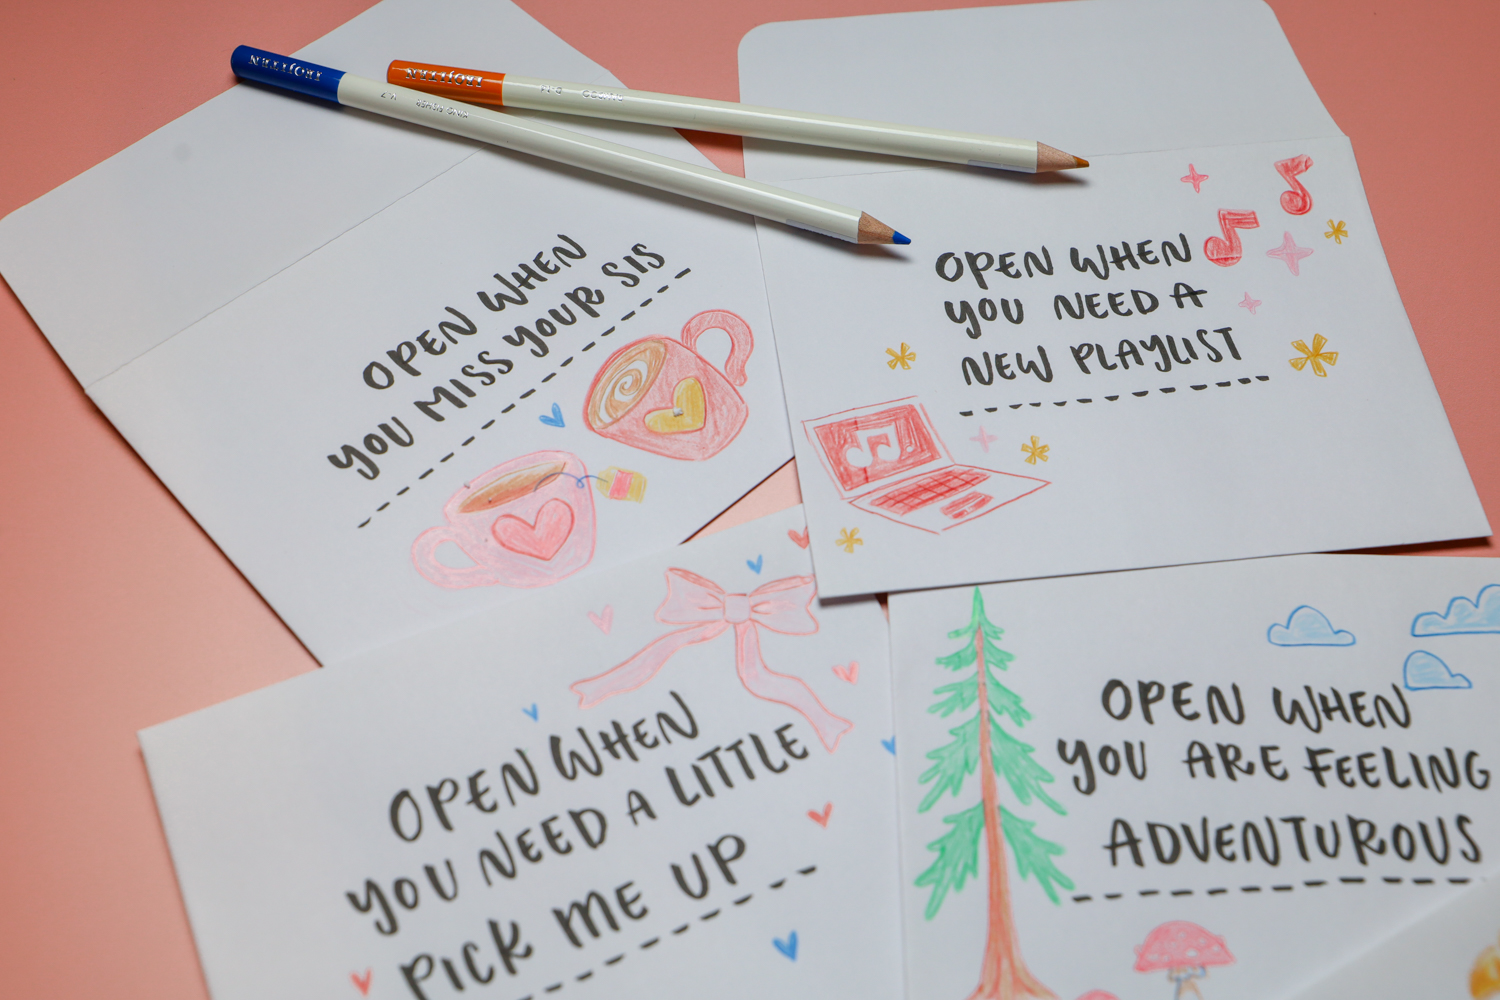 IROJITEN
IROJITEN
OPEN WHEN
YOU MISS YOUR SIS
OPEN WHEN
YOU NEED A
NEW PLAYLIST
OPEN WHEN
YOU NEED A LITTLE
PICK ME UP
OPEN WHEN
YOU ARE FEELING
ADVENTUROUS